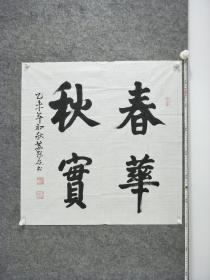 春華
秋實
乙未年初秋